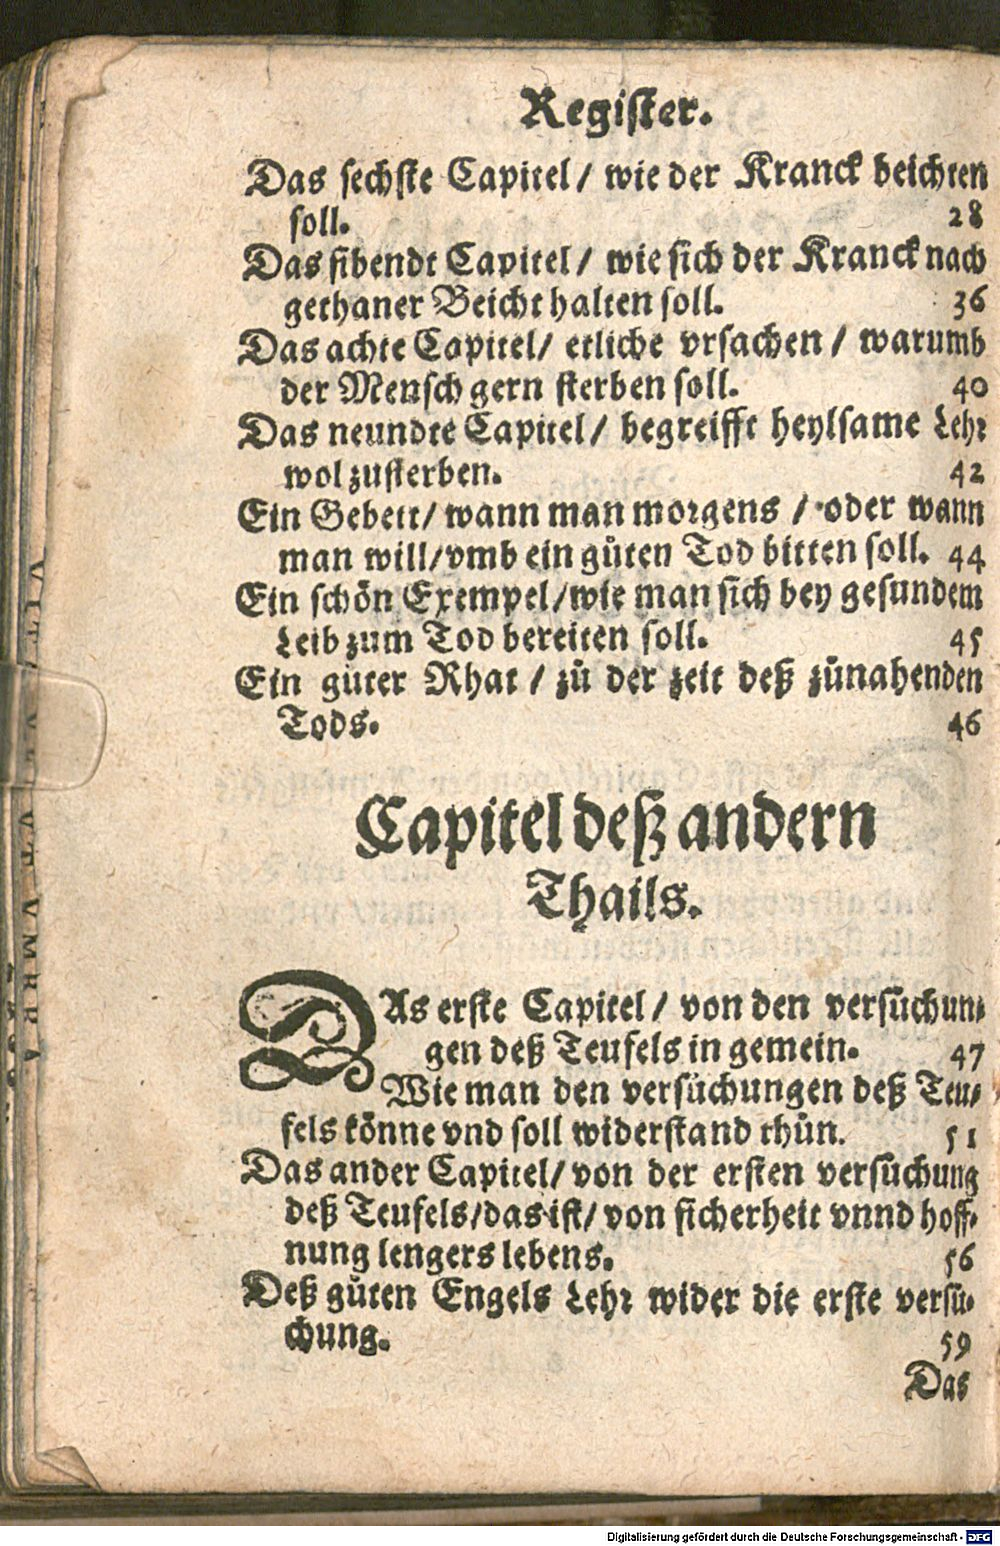 Register.
Das sechste Capitel / wie der Kranck beichten
soll. 28
Das sibendt Capitel / wie sich der Kranck nach
gethaner Beicht halten soll. 36
Das achte Capitel / etliche vrsachen / warumb
der Mensch gern sterben soll. 40
Das neundte Capitel / begreifft heylsame Lehr
wol zusterben. 42
Ein Gebett / wann man morgens / oder wann
man will / vmb ein gůten Tod bitten soll. 44
Ein schön Exempel / wie man sich bey gesundem
Leib zum Tod bereiten soll. 45
Ein gůter Rhat / zů der zeit deß zůnahenden
Tods. 46
Capitel deß andern
Thails.
DAs erste Capitel / von den versůchun-
gen deß Teufels in gemein. 47
Wie man den versůchungen deß Teu-
fels könne vnd soll widerstand thůn. 51
Das ander Capitel / von der ersten versůchung
deß Teufels / das ist / von sicherheit vnnd hoff-
nung lengers lebens. 56
Deß gůten Engels Lehr wider die erste versů-
chung. 59
Das
Digitalisierung gefördert durch die Deutsche Forschungsgemeinschaft - DFG